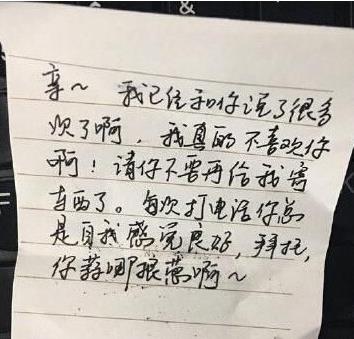 亲~ 我已经和你说了很多
次了啊，我真的不喜欢你
啊！请你不要再给我寄
东西了。每次打电话你总
是自我感觉良好，拜托，
你荔哪根葱啊~
&